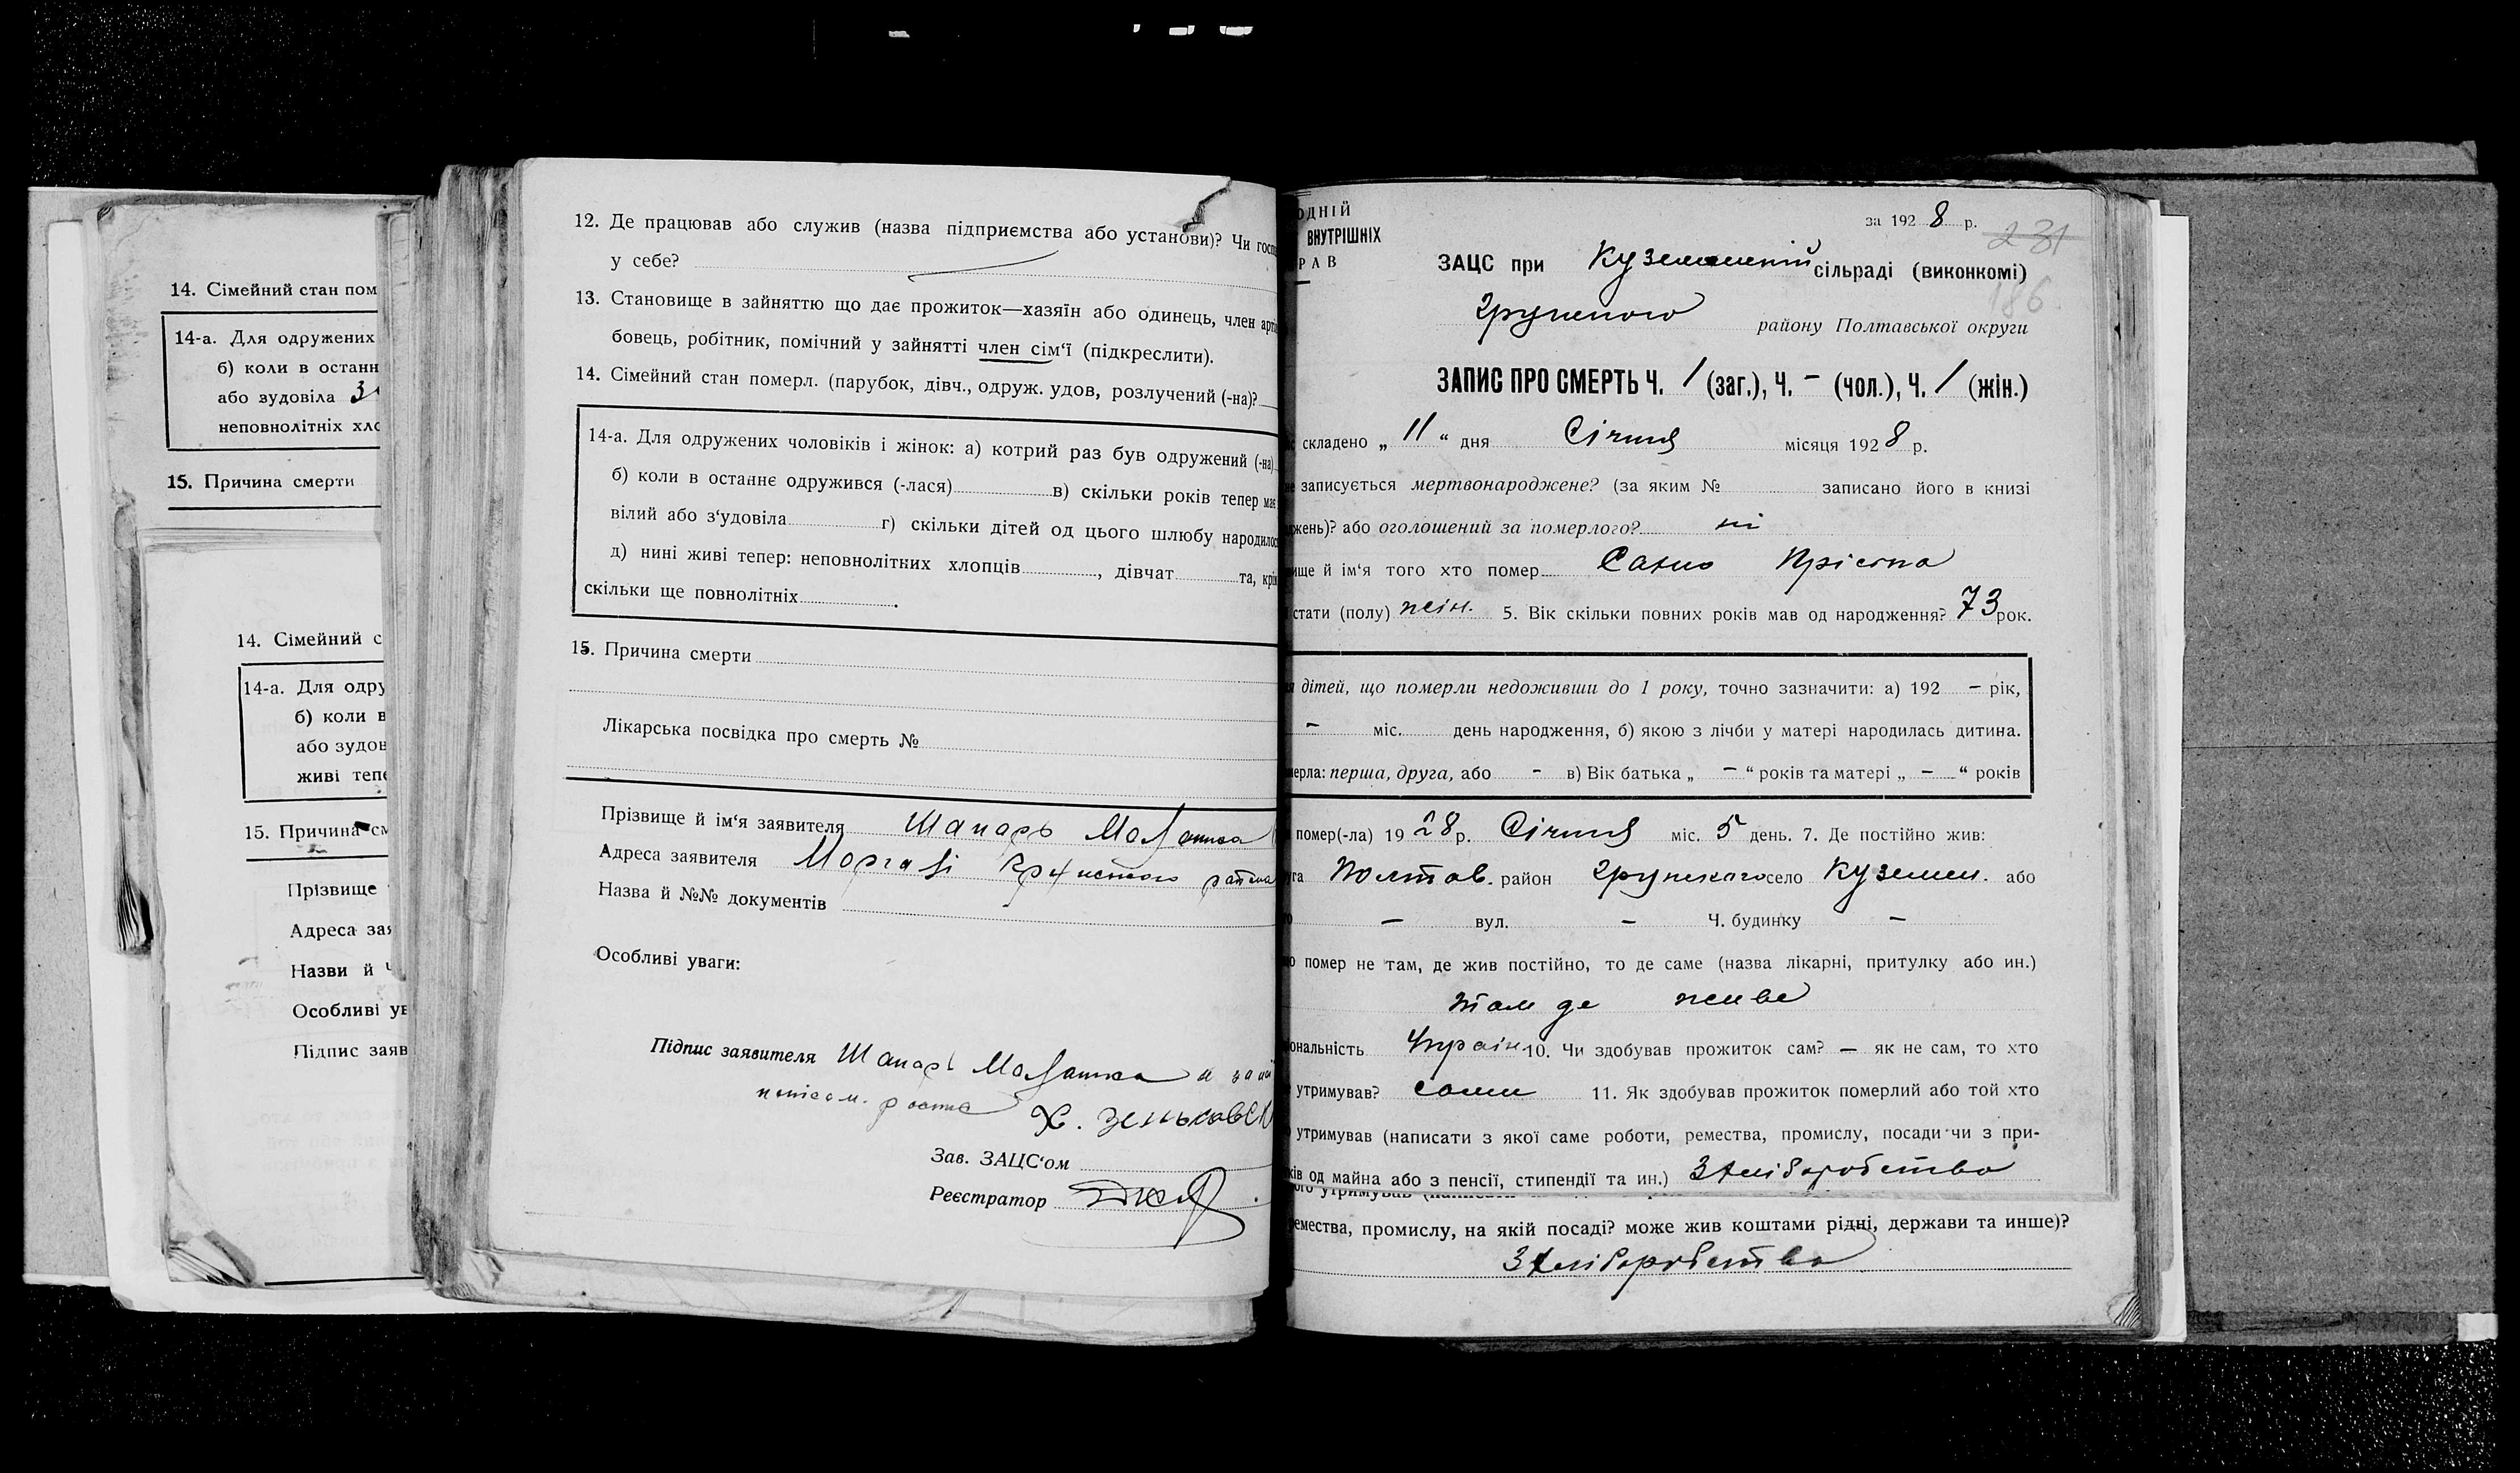 14. Сімейний стан пом
14-а. Для одружених
б) коли в останн
або зудовіла
неповнолітніх хло
15. Причина смерти
14. Сімейний с
14-а. Для одру
б) коли в
або зудов
живі тепе
15. Причина см
Прізвище
Адреса зая
Назви й
Особливі ув
Підпис заяв
12. Де працював або служив (назва підприємства або установи)? Чи госп
у себе?
13. Становище в зайняттю що дає прожиток—хазяїн або одинець, член арті
бовець, робітник, помічний у зайнятті член сім‘ї (підкреслити).
14. Сімейний стан померл. (парубок, дівч., одруж. удов, розлучений (-на)?
14-а. Для одружених чоловіків і жінок: а) котрий раз був одружений (-на)
б) коли в останнє одружився (-лася) в) скільки років тепер має
вілий або з‘удовіла г) скільки дітей од цього шлюбу народилос
д) нині живі тепер: неповнолітних хлопців, дівчат та, крім
скільки ще повнолітніх.
15. Причина смерти
Лікарська посвідка про смерть №
Прізвище й ім‘я заявителя Шапарь
Адреса заявителя
Назва й №№ документів
Особливі уваги:
Підпис заявителя Шапарь
Зав. ЗАЦС‘ом
Реєстратор
ОДНІЙ
ВНУТРІШНІХ
РАВ
за 1928 р.
231
186
ЗАЦС при Куземенській сільраді (виконкомі)
Грунського району Полтавської округи
ЗАПИС ПРО СМЕРТЬ Ч. 1 (заг.), Ч. – (чол.), Ч. 1 (жін.)
складено „11“ дня Січня місяця 1928 р.
записується мертвонароджене? (за яким № записано його в книзі
джень)? або оголошений за померлого? ні
вище й ім‘я того хто помер Сахно
стати (полу) жін. 5. Вік скільки повних років мав од народження? 73 рок.
дітей, що померли недоживши до 1 року, точно зазначити: а) 192 – рік,
– міс. день народження, б) якою з лічби у матері народилась дитина.
мерла: перша, друга, або - в) Вік батька „ – “ років та матері „ – “ років
помер(-ла) 1928 р. Січня міс. 5 день. 7. Де постійно жив:
Полтав. район Грунського село Куземен. або
– вул. – Ч. будинку –
помер не там, де жив постійно, то де саме (назва лікарні, притулку або ин.)
там де живе
ональність Україн. 10. Чи здобував прожиток сам? — як не сам, то хто
утримував? сами 11. Як здобував прожиток померлий або той хто
утримував (написати з якої саме роботи, ремества, промислу, посади чи з при-
ків од майна або з пенсії, стипендії та ин.) З хліборобства
ремества, промислу, на якій посаді? може жив коштами рідні, держави та инше)?
З хліборобства